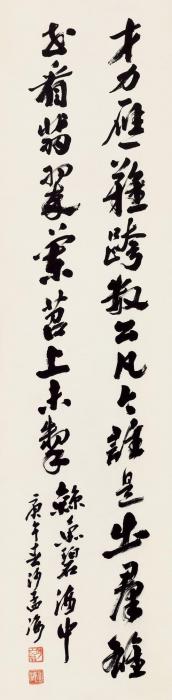 才力應難跨數公凡今誰是出羣雄
或看翡翠蘭苕上未掣
鯨魚碧海中
庚午春沙孟海